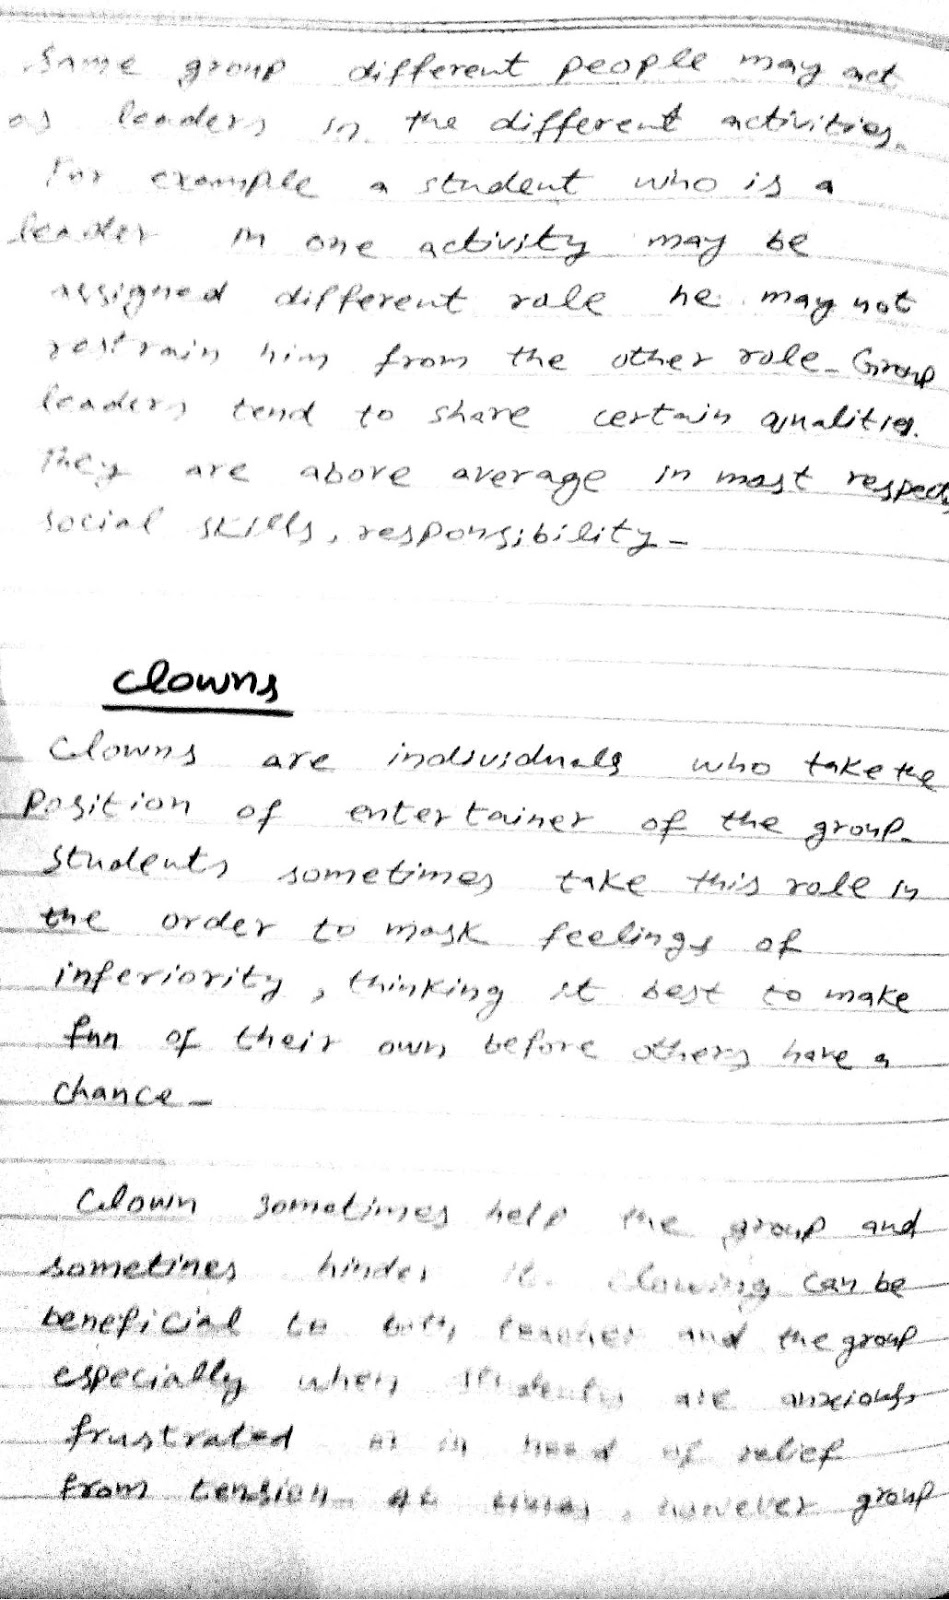 same group different people may act
as leaders in the different activities.
For example a student who is a
leader in one activity may be
assigned different role he may not
restrain him from the other role. Group
leaders tend to share certain qualities.
They are above average in most respects
social skills, responsibility.
Clowns
Clowns are individuals who take the
position of entertainer of the group.
students sometimes take this role in
the order to mask feelings of
inferiority, thinking it best to make
fun of their own before others have a
chance.
Clown sometimes help the group and
sometimes hinder it. Clowing can be
beneficial to both teacher and the group
especially when students are anxious,
frustrated or in need of relief
from tension. At times, however group